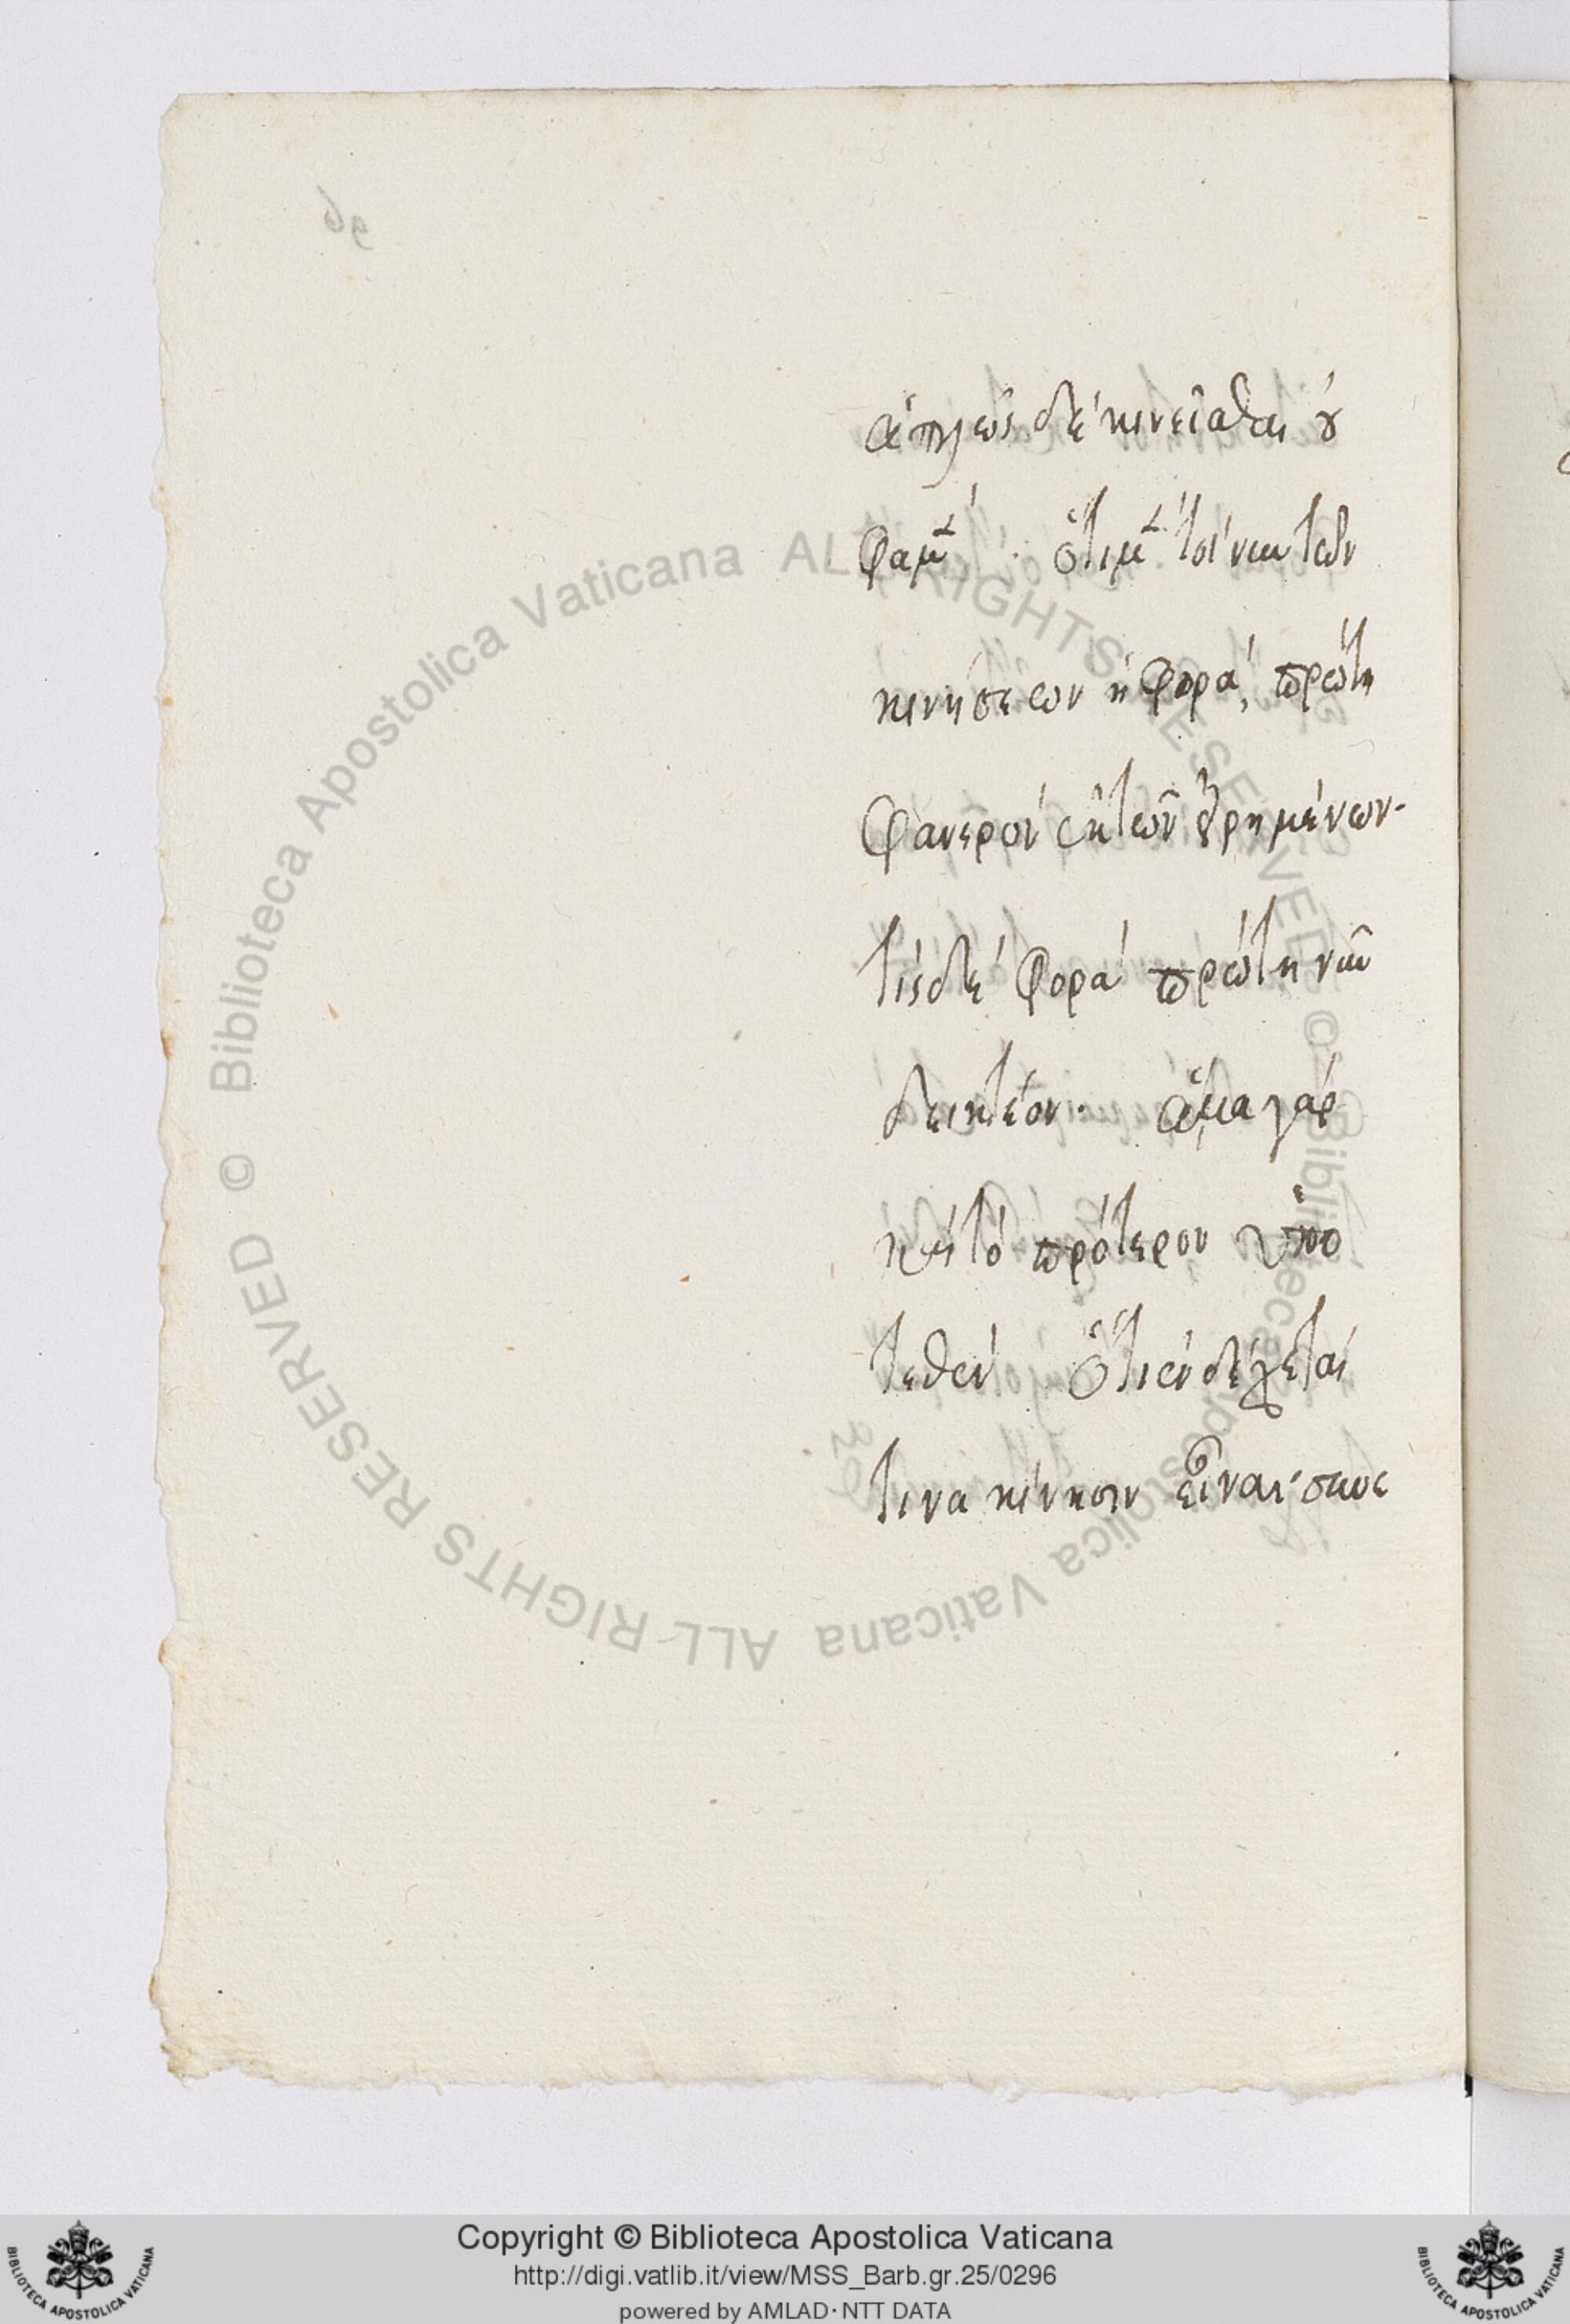 ἁπλῶς δὲ κινεῖσθαι οὐ
φαμέν · ὅτι μὲν τοίνυν τῶν
κινήσεων ἡ φορὰ, πρώτη
φανερὸν ἐκ τῶν εἰρημένων·
τίς δὲ φορὰ πρώτη νῦν
δεικτέον· ἅμα γὰρ
καὶ τὸ πρότερον ὑπο
τεθὲν ὅτι ἐνδέχεταί
τινα κίνησιν εἶναι
Biblioteca Apostolica Vaticana ALL RIGHTS RESERVED ©
Biblioteca Apostolica Vaticana ALL RIGHTS RESERVED ©
Copyright © Biblioteca Apostolica Vaticana
http://digi.vatlib.it/view/MSS_Barb.gr.25/0296
powered by AMLAD·NTT DATA
BIBLIOTECA APOSTOLICA VATICANA
BIBLIOTECA APOSTOLICA VATICANA